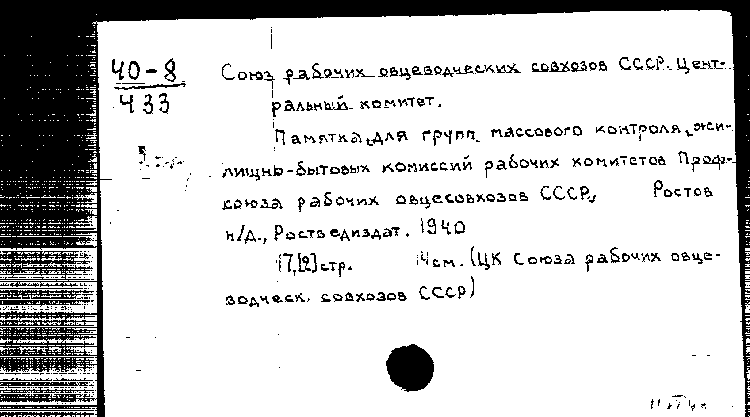 40-8
433
Союз рабочих овцеводческих совхозов СССР. Цент-
ральный комитет.
Памятка для групп массового контроля, жи-
лищно-бытовых комиссий рабочих комитетов Проф-
союза рабочих овцесовхозов СССР,, Ростов
н/Д., Роствединздат. 1940
17,[2] стр. 14 см. (ЦК Союза рабочих овце-
водческ. совхозов СССР)